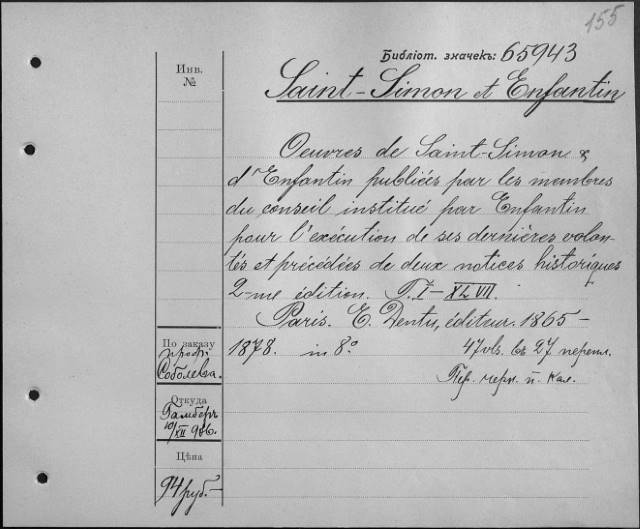 155
Библіот. значекъ: 65943
Инв.
№
Saint-Simon et Enfantin
Oeuvres de Saint-Simon &
d'Enfantin publiées par les membres
du conseil institué par Enfantin
pour l'exécution de ses dernières volon-
tés et précédées de deux notices historiques
2-me édition. T. I – XLVII.
Paris. E. Dentu, éditeur. 1865 –
1878. in 8°. 47 vls. въ 27 перепл.
Пер. черн. п. кал.
По заказу
проф.
Соболева.
Откуда
Гамберъ
10/XII 906.
Цѣна
94 руб. –